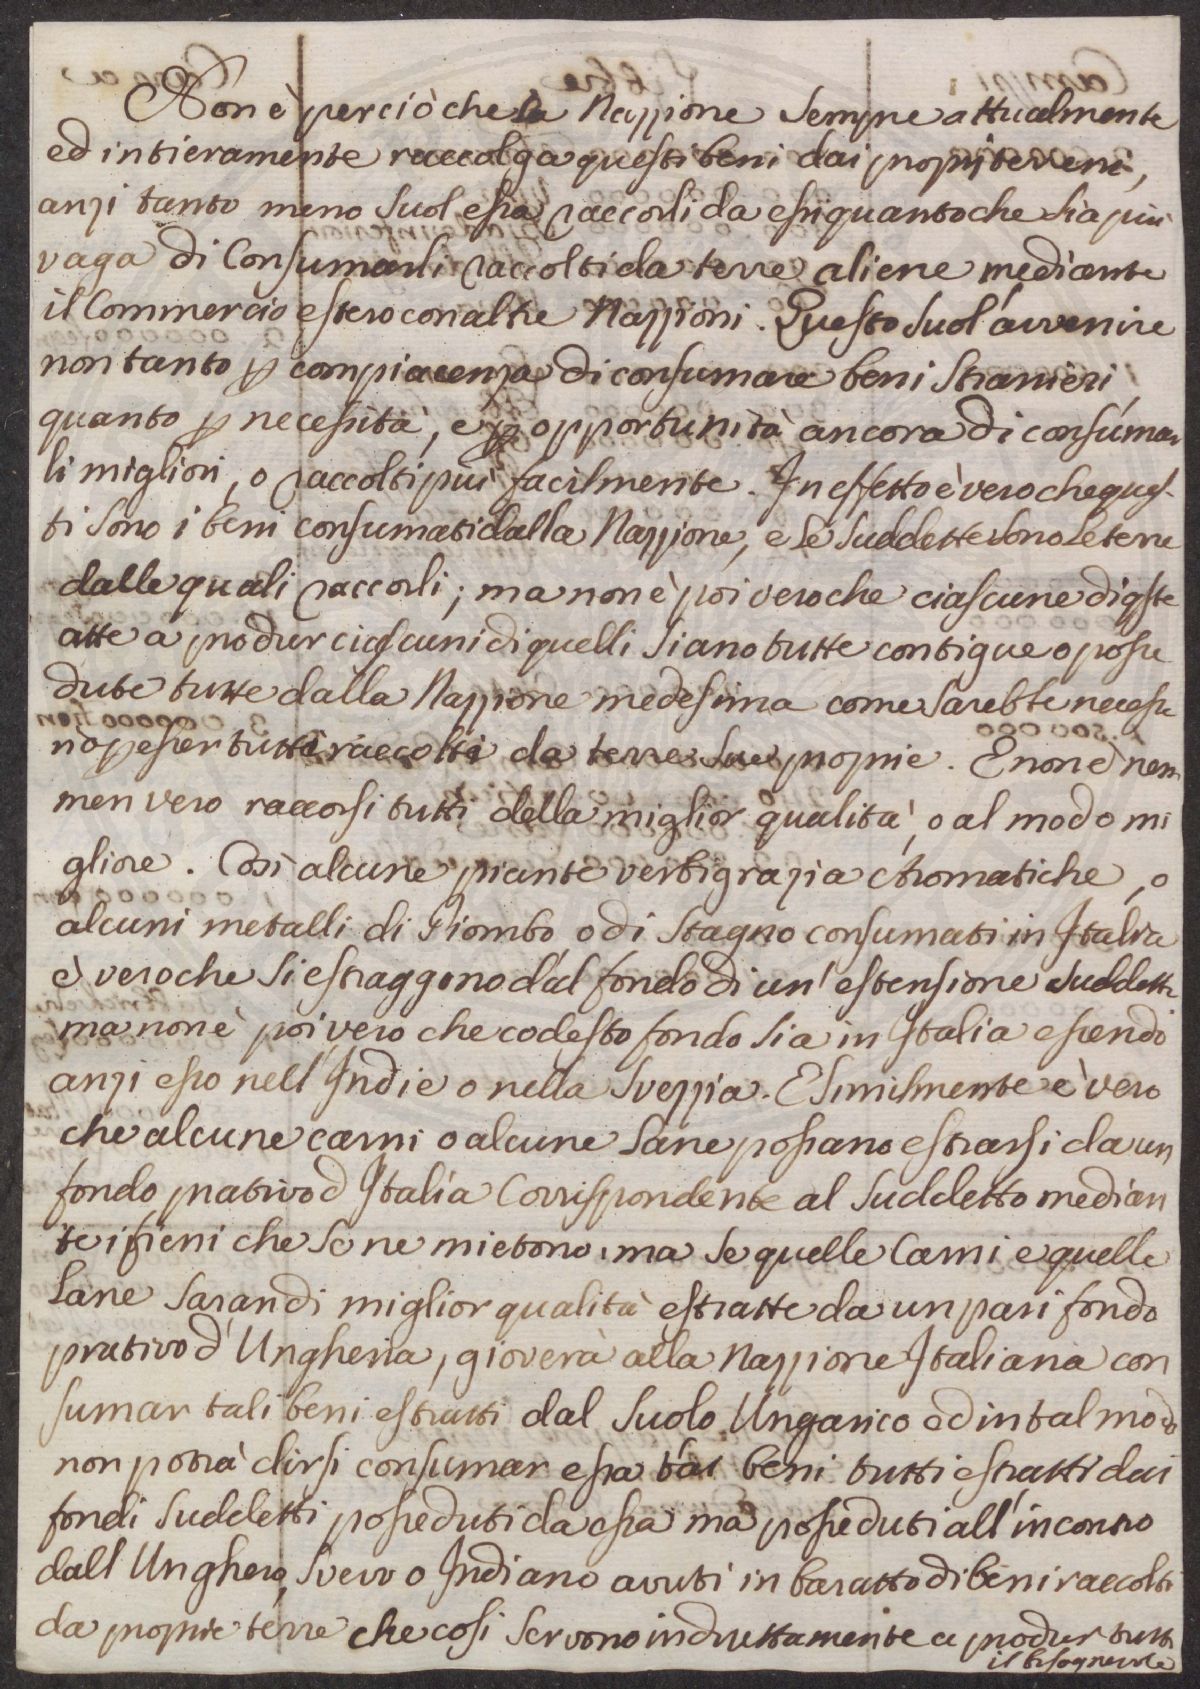 Non è perciò che la Nazzione sempre attualmente
ed intieramente raccolga questi beni dai proprj terreni,
anzi tanto meno suol essa raccorli da essi quanto che sia più
vaga di Consumarli raccolti da terre aliene mediante
il Commercio estero con altre Nazzioni. Questo suol avvenire
non tanto p compiacenza di consumare beni stranieri,
quanto p necessità, e p opportunità ancora di consumar
li migliori, o raccolti più facilmente. In effetto è vero che ques-
ti sono i beni consumati dalla Nazzione, e le suddette sono le terre
dalle quali raccorli; ma non è poi vero che ciascune di qste
atte a produr ciascuni di quelli siano tutte contigue o posse
dute tutte dalla Nazzione medesima come sarebbe necessa
rio p esser tutti raccolti da terre sue proprie. E non è nem
men vero raccorsi tutti della miglior qualità, o al modo mi
gliore. Così alcune piante verbigrazia aromatiche, o
alcuni metalli di Piombo, o di stagno consumati in Italia
è vero che si estraggono dal fondo di un' estensione suddetta
ma non è poi vero che codesto fondo sia in Italia essendo
anzi esso nell'Indie o nella Svezzia. E similmente è vero
che alcune carni o alcune lane possano estrarsi da un
fondo prativo d'Italia Corrispondente al suddetto median
te i fieni che se ne mietono, ma se quelle Carni e quelle
Lane saran di miglior qualità estratte da un pari fondo
prativo d'Ungheria, gioverà alla Nazzione Italiana con
sumar tali beni estratti dal suolo Ungarico ed in tal modo
non potrà dirsi consumar essa tai beni tutti estratti dai
fondi suddetti posseduti da essa ma posseduti all'incontro
dall'Unghero, Svevo o Indiano avuti in baratto di beni raccolti
da proprie terre che così servono indirettamente a produr tutto
il bisognevole